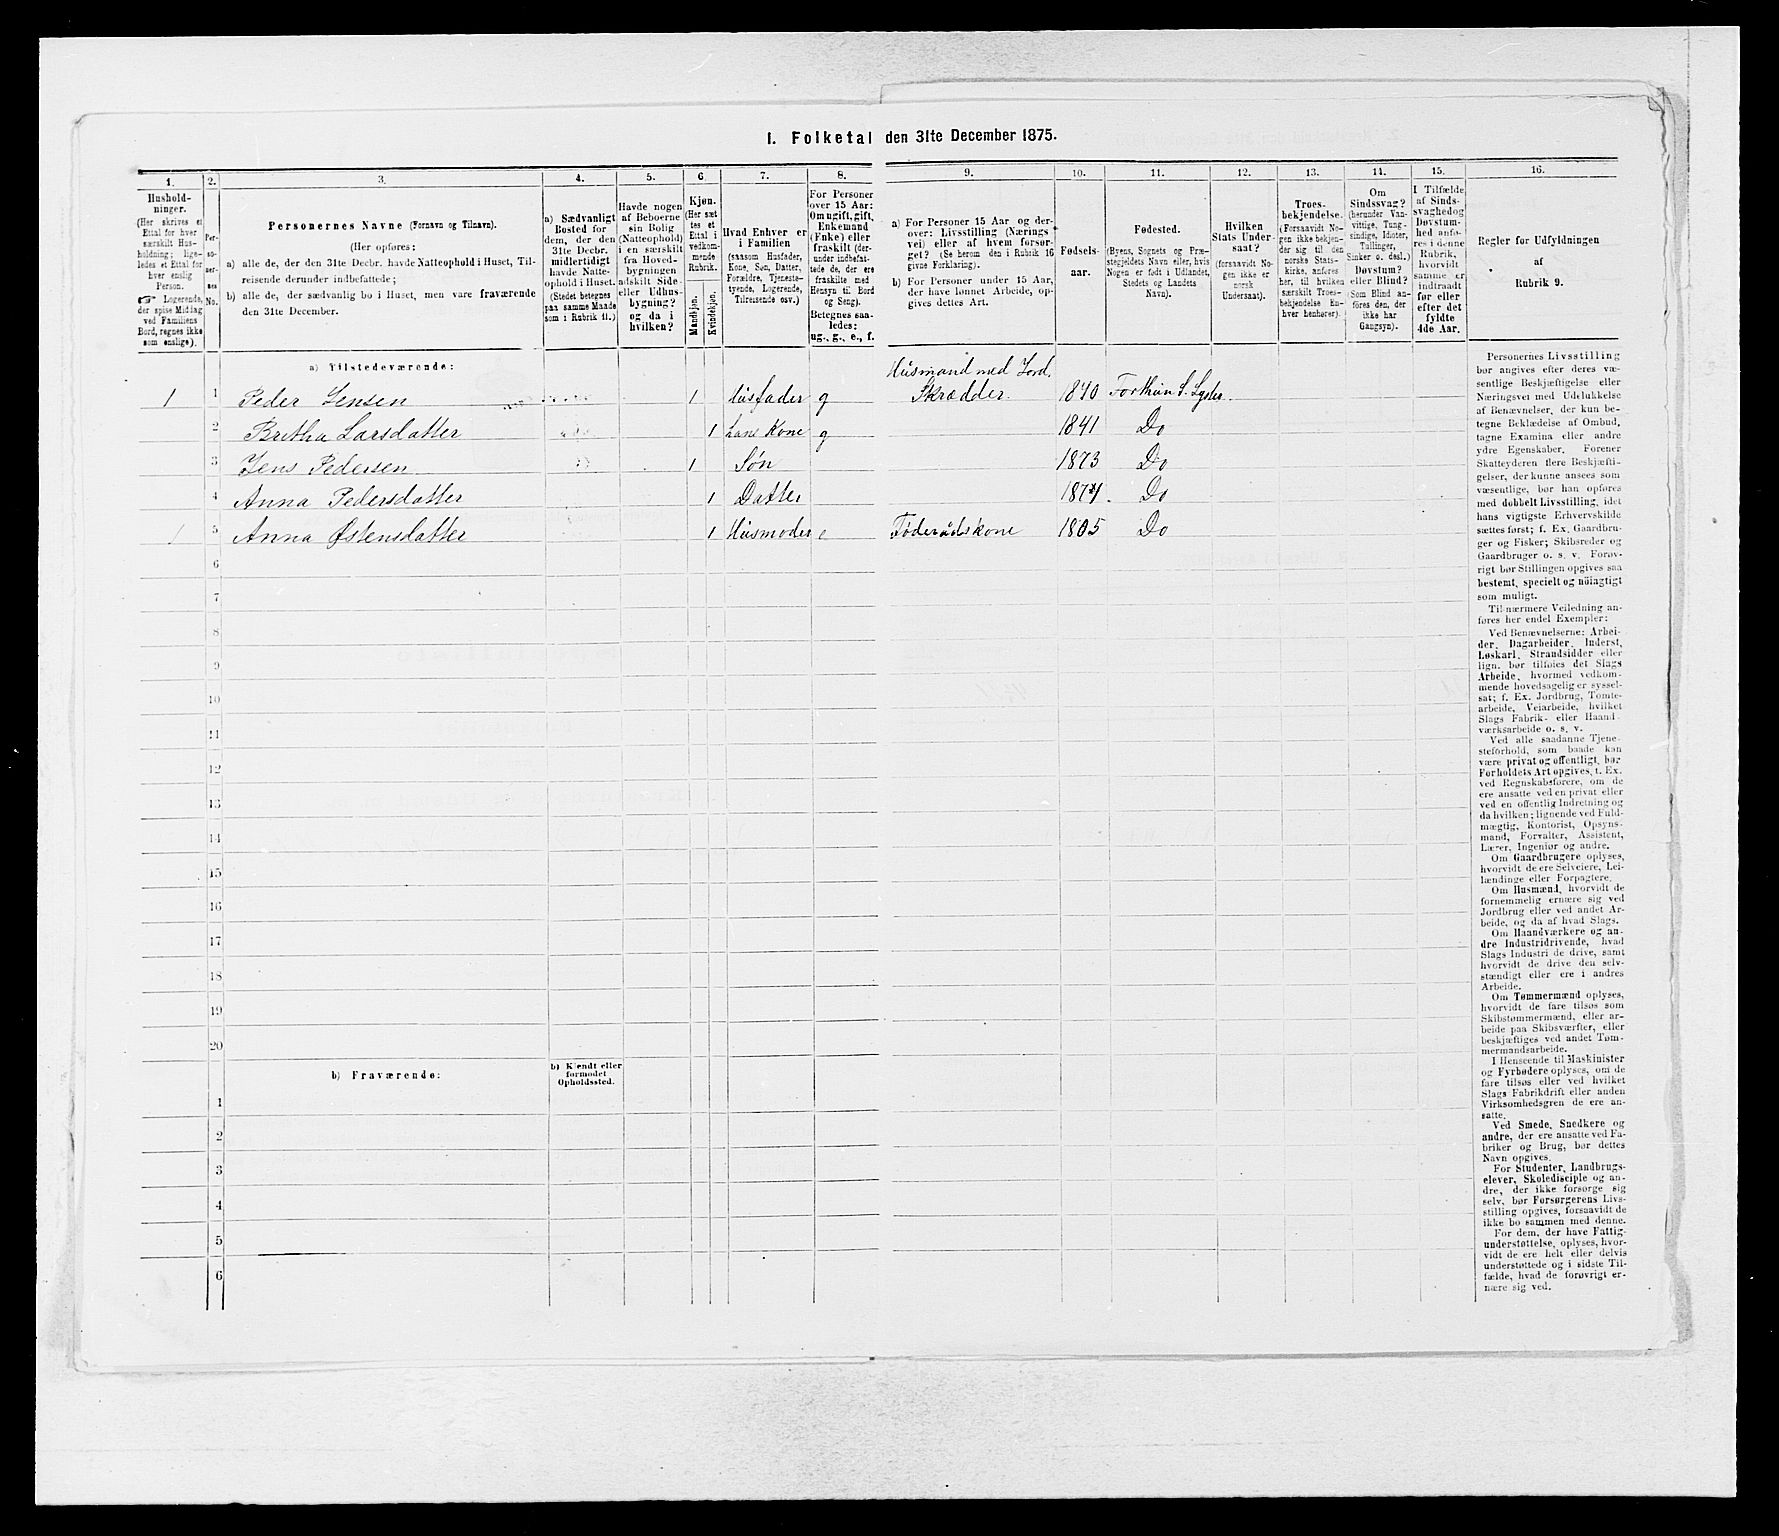 1. Folketal den 31te December 1875.
1.
Hushold-
ninger.
(Her skrives et
Ettal for hver
særskilt Hus-
holdning; lige-
ledes et Ettal for
hver enslig
Person.
☞ Logerende,
der spise Middag
ved Familiens
Bord, regnes ikke
som enslige).
2.
Per-
so-
ner-
nes
No.
3.
Personernes Navne (Fornavn og Tilnavn).
(Her opføres:
a) alle de, der den 31te Decbr. havde Natteophold i Huset, Til-
reisende derunder indbefattede;
b) alle de, der sædvanlig bo i Huset, men vare fraværende
den 31te December.
4.
a) Sædvanligt
Bosted for
dem, der den
31te Decbr.
midlertidigt
havde Natte-
ophold i Huset.
(Stedet betegnes
paa samme Maade
som i Rubrik 11.)
5.
Havde nogen
af Beboerne
sin Bolig
(Natteophold)
i en særskilt
fra Hoved-
bygningen
adskilt Side-
eller Udhus-
bygning?
og da i
hvilken?
6.
Kjøn.
(Her sæt-
tes et
Ettal i
vedkom-
mende
Rubrik.
Mandkjøn.
Kvindekjøn.
7.
Hvad Enhver er
i Familien
(saasom Husfader,
Kone, Søn, Datter,
Forældre, Tjeneste-
tyende, Logerende,
Tilreisende osv.)
8.
For Personer
over 15 Aar:
Om ugift, gift,
Enkemand
(Enke) eller
fraskilt (der-
under indbefat-
tede de, der ere
fraskilte med
Hensyn til Bord
og Seng).
Betegnes saa-
ledes:
ug., g., e., f.
9.
a) For Personer 15 Aar og der-
over: Livsstilling (Nærings-
vei) eller af hvem forsør-
get? (Se herom den i Rubrik 16
givne Forklaring).
b) For Personer under 15 Aar,
der have lønnet Arbeide, op-
gives dettes Art.
10.
Fødsels-
aar.
11.
Fødested.
(Byens, Sognets og Præ-
stegjeldets Navn eller, hvis
Nogen er født i Udlandet,
Stedets og Landets
Navn).
12.
Hvilken
Stats Under-
saat?
(forsaavidt No-
gen ikke er
norsk
Undersaat).
13.
Troes-
bekjendelse.
(Forsaavidt No-
gen ikke bekjen-
der sig til den
norske Stats-
kirke, anføres
her, til hvilken
særskilt Troes-
bekjendelse En-
hver henhører).
14.
Om
Sindssvag?
(herunder Van-
vittige, Tung-
sindige, Idioter,
Tullinger,
Sinker o. desl.)
Døvstum?
eller Blind?
(Som Blind an-
føres den, der
ikke har
Gangsyn).
15.
I Tilfælde
af Sinds-
svaghed og
Døvstum-
hed anfø-
res i denne
Rubrik,
hvorvidt
samme er
indtraadt
før eller
efter det
fyldte
4de Aar.
16.
Regler før Udfyldningen
af
Rubrik 9.
a) Tilstedeværende:
Husmand med Jord.
1 1 Peder Jensen 1 Husfader g Skrædder 1840 Forthun S. Lyster
2 Britha Larsdatter 1 hans Kone g 1841 Do
3 Jens Pedersen 1 Søn 1873 Do
4 Anna Pedersdatter 1 Datter Do
1 5 Anna Østensdatter 1 Husmoder e Føderådskone 1805 Do
6
7
8
9
10
11
12
13
14
15
16
17
18
19
20
b) Fraværende:
b) Kjendt eller
formodet
Opholdssted.
1
2
3
4
5
6
Personernes Livsstilling
bør angives efter deres væ-
sentlige Beskjæftigelse eller
Næringsvei med Udelukkelse
af Benævnelser, der kun be-
tegne Beklædelse af Ombud,
tagne Examina eller andre
ydre Egenskaber. Forener
Skatteyderen flere Beskjæfti-
gelser, der kunne ansees som
væsentlige, bør han opføres
med dobbelt Livsstilling, idet
hans vigtigste Erhvervskilde
sættes først; f. Ex. Gaardbru-
ger og Fisker; Skibsreder og
Gaardbruger o. s. v. Forøv-
rigt bør Stillingen opgives saa
bestemt, specielt og nöiagtigt
som muligt.
Til nærmere Veiledning an-
føres her endel Exempler:
Ved Benævnelserne: Arbei-
der, Dagarbeider, Inderst,
Løskarl, Strandsidder eller
lign. bør tilføies det Slags
Arbeide, hvormed vedkom-
mende hovedsagelig er syssel-
sat; f. Ex. Jordbrug, Tomte-
arbeide, Veiarbeide, hvilket
Slags Fabrik- eller Haand-
værksarbeide o. s. v.
Ved alle saadanne Tjene-
steforhold, som baade kan
være privat og offentligt, bør
Forholdets Art opgives, t. Ex.
ved Regnskabsførere, om de
ere ansatte ved en privat eller
ved en offentlig Indretning og
da hvilken; lignende ved Fuld-
mægtig, Kontorist, Opsyns-
mand, Forvalter, Assistent,
Lærer, Ingeniør og andre.
Om Gaardbrugere oplyses,
hvorvidt de ere Selveiere, Lei-
lændinge eller Forpagtere.
Om Husmænd, hvorvidt de
fornemmelig ernære sig ved
Jordbrug eller ved andet Ar-
beide, og da af hvad Slags.
Om Haandværkere og an-
dre Industridrivende, hvad
Slags Industri de drive, samt
hvorvidt de drive den selv-
stændigt eller ere i andres
Arbeide.
Om Tømmermænd oplyses,
hvorvidt de fare tilsøs som
Skibstømmermænd, eller ar-
beide paa Skibsværfter, eller
beskjæftiges ved andet Tøm-
mermandsarbeide.
I Henseende til Maskinister
og Fyrbødere oplyses, om de
fare tilsøs eller ved hvilket
Slags Fabrikdrift eller anden
Virksomhedsgren de ere an-
satte.
Ved Smede, Snedkere og
andre, der ere ansatte ved Fa-
briker og Brug, bør dettes
Navn opgives.
For Studenter, Landbrugs-
elever, Skoledisciple og an-
dre, der ikke forsørge sig
selv, bør Forsørgerens Livs-
stilling opgives, forsaavidt de
ikke bo sammen med denne.
For dem, der have Fattig-
understøttelse, oplyses, hvor-
vidt de ere helt eller delvis
understøttede og i sidste Til-
fælde, hvad de forøvrigt er-
nære sig ved.